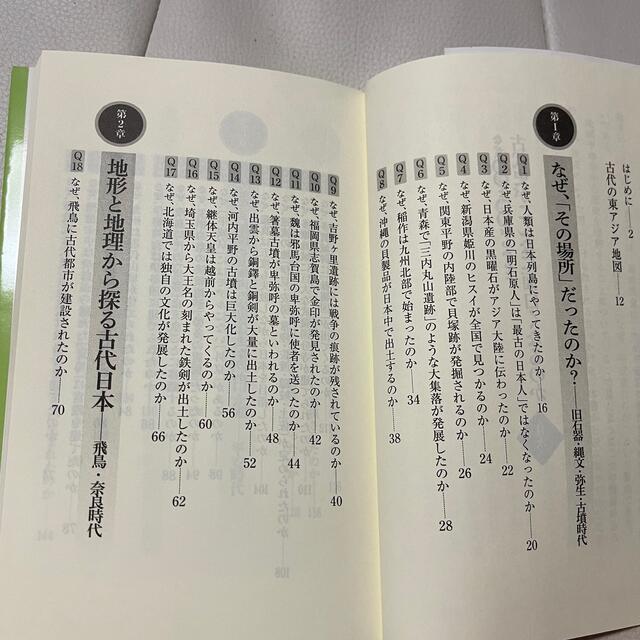 はじめに──2
古代の東アジア地図──12
第1章
なぜ、「その場所」だったのか?──旧石器・縄文・弥生・古墳時代
Q1 なぜ、人類は日本列島にやってきたのか──16
Q2 なぜ、兵庫県の「明石原人」は「最古の日本人」ではなくなったのか──20
Q3 なぜ、日本産の黒曜石がアジア大陸に伝わったのか──22
Q4 なぜ、新潟県姫川のヒスイが全国で見つかるのか──24
Q5 なぜ、関東平野の内陸部で貝塚跡が発掘されるのか──26
Q6 なぜ、青森で「三内丸山遺跡」のような大集落が発展したのか──28
Q7 なぜ、稲作は九州北部で始まったのか──34
Q8 なぜ、沖縄の貝製品が日本中で出土するのか──38
Q9 なぜ、吉野ヶ里遺跡には戦争の痕跡が残されているのか──40
Q10 なぜ、福岡県志賀島で金印が発見されたのか──42
Q11 なぜ、魏は邪馬台国の卑弥呼に使者を送ったのか──44
Q12 なぜ、箸墓古墳が卑弥呼の墓といわれるのか──48
Q13 なぜ、出雲から銅鐸と銅剣が大量に出土したのか──52
Q14 なぜ、河内平野の古墳は巨大化したのか──56
Q15 なぜ、継体天皇は越前からやってくるのか──60
Q16 なぜ、埼玉県から大王名の刻まれた鉄剣が出土したのか──62
Q17 なぜ、北海道では独自の文化が発展したのか──66
第2章
地形と地理から探る古代日本──飛鳥・奈良時代
Q18 なぜ、飛鳥に古代都市が建設されたのか──70